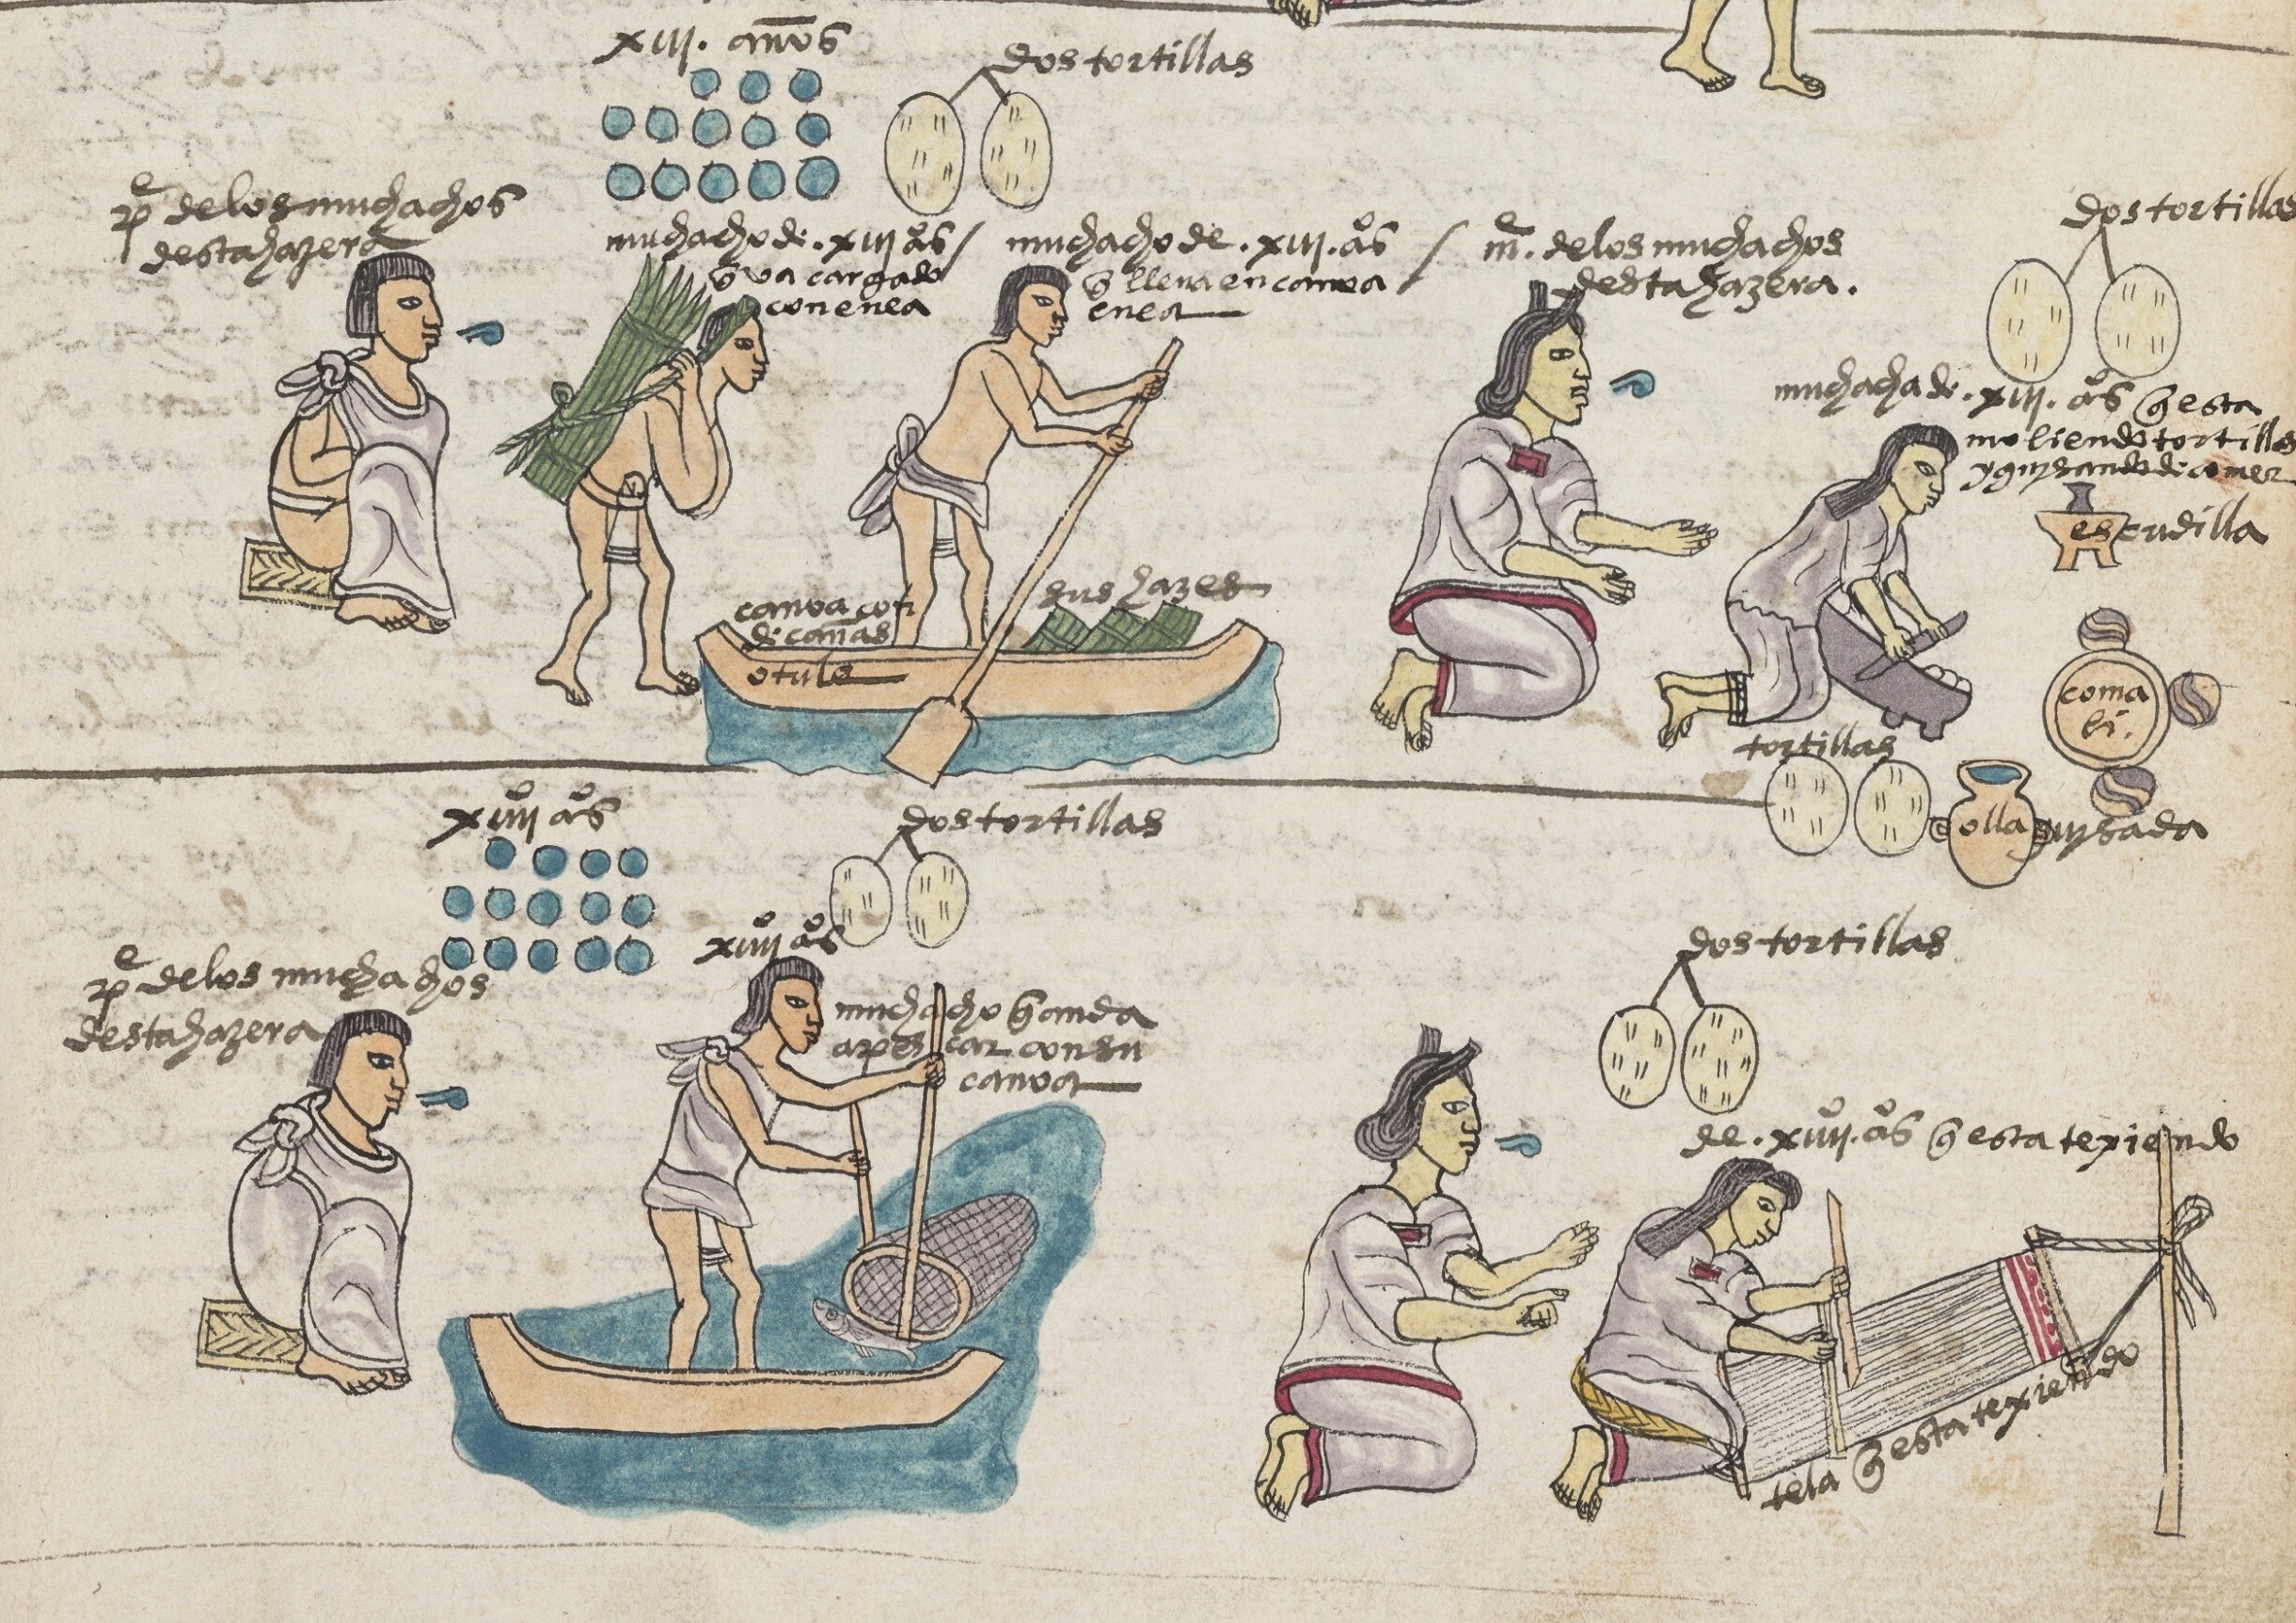 xiii. años
dos tortillas
pe de los muchachos
desta hazera
muchacho de. xiii as /
q va cargado
con enea
muchacho de. xiii. as /
q lleva en canoa
enea
me. de los muchachos
desta hazera.
dos tortillas
muchacha de. xiii. as q esta
moliendo tortillas
y guisando de comer
escudilla
canoa con
di cañas
o tule
sus hazes
coma
li.
tortillas
olla guisada
xiiii as
dos tortillas
pe de los muchachos
desta hazera
xiiii as
muchacho q anda
a pescar con su
canoa
dos tortillas
de. xiiii. as q esta texiendo
tela q esta texiendo